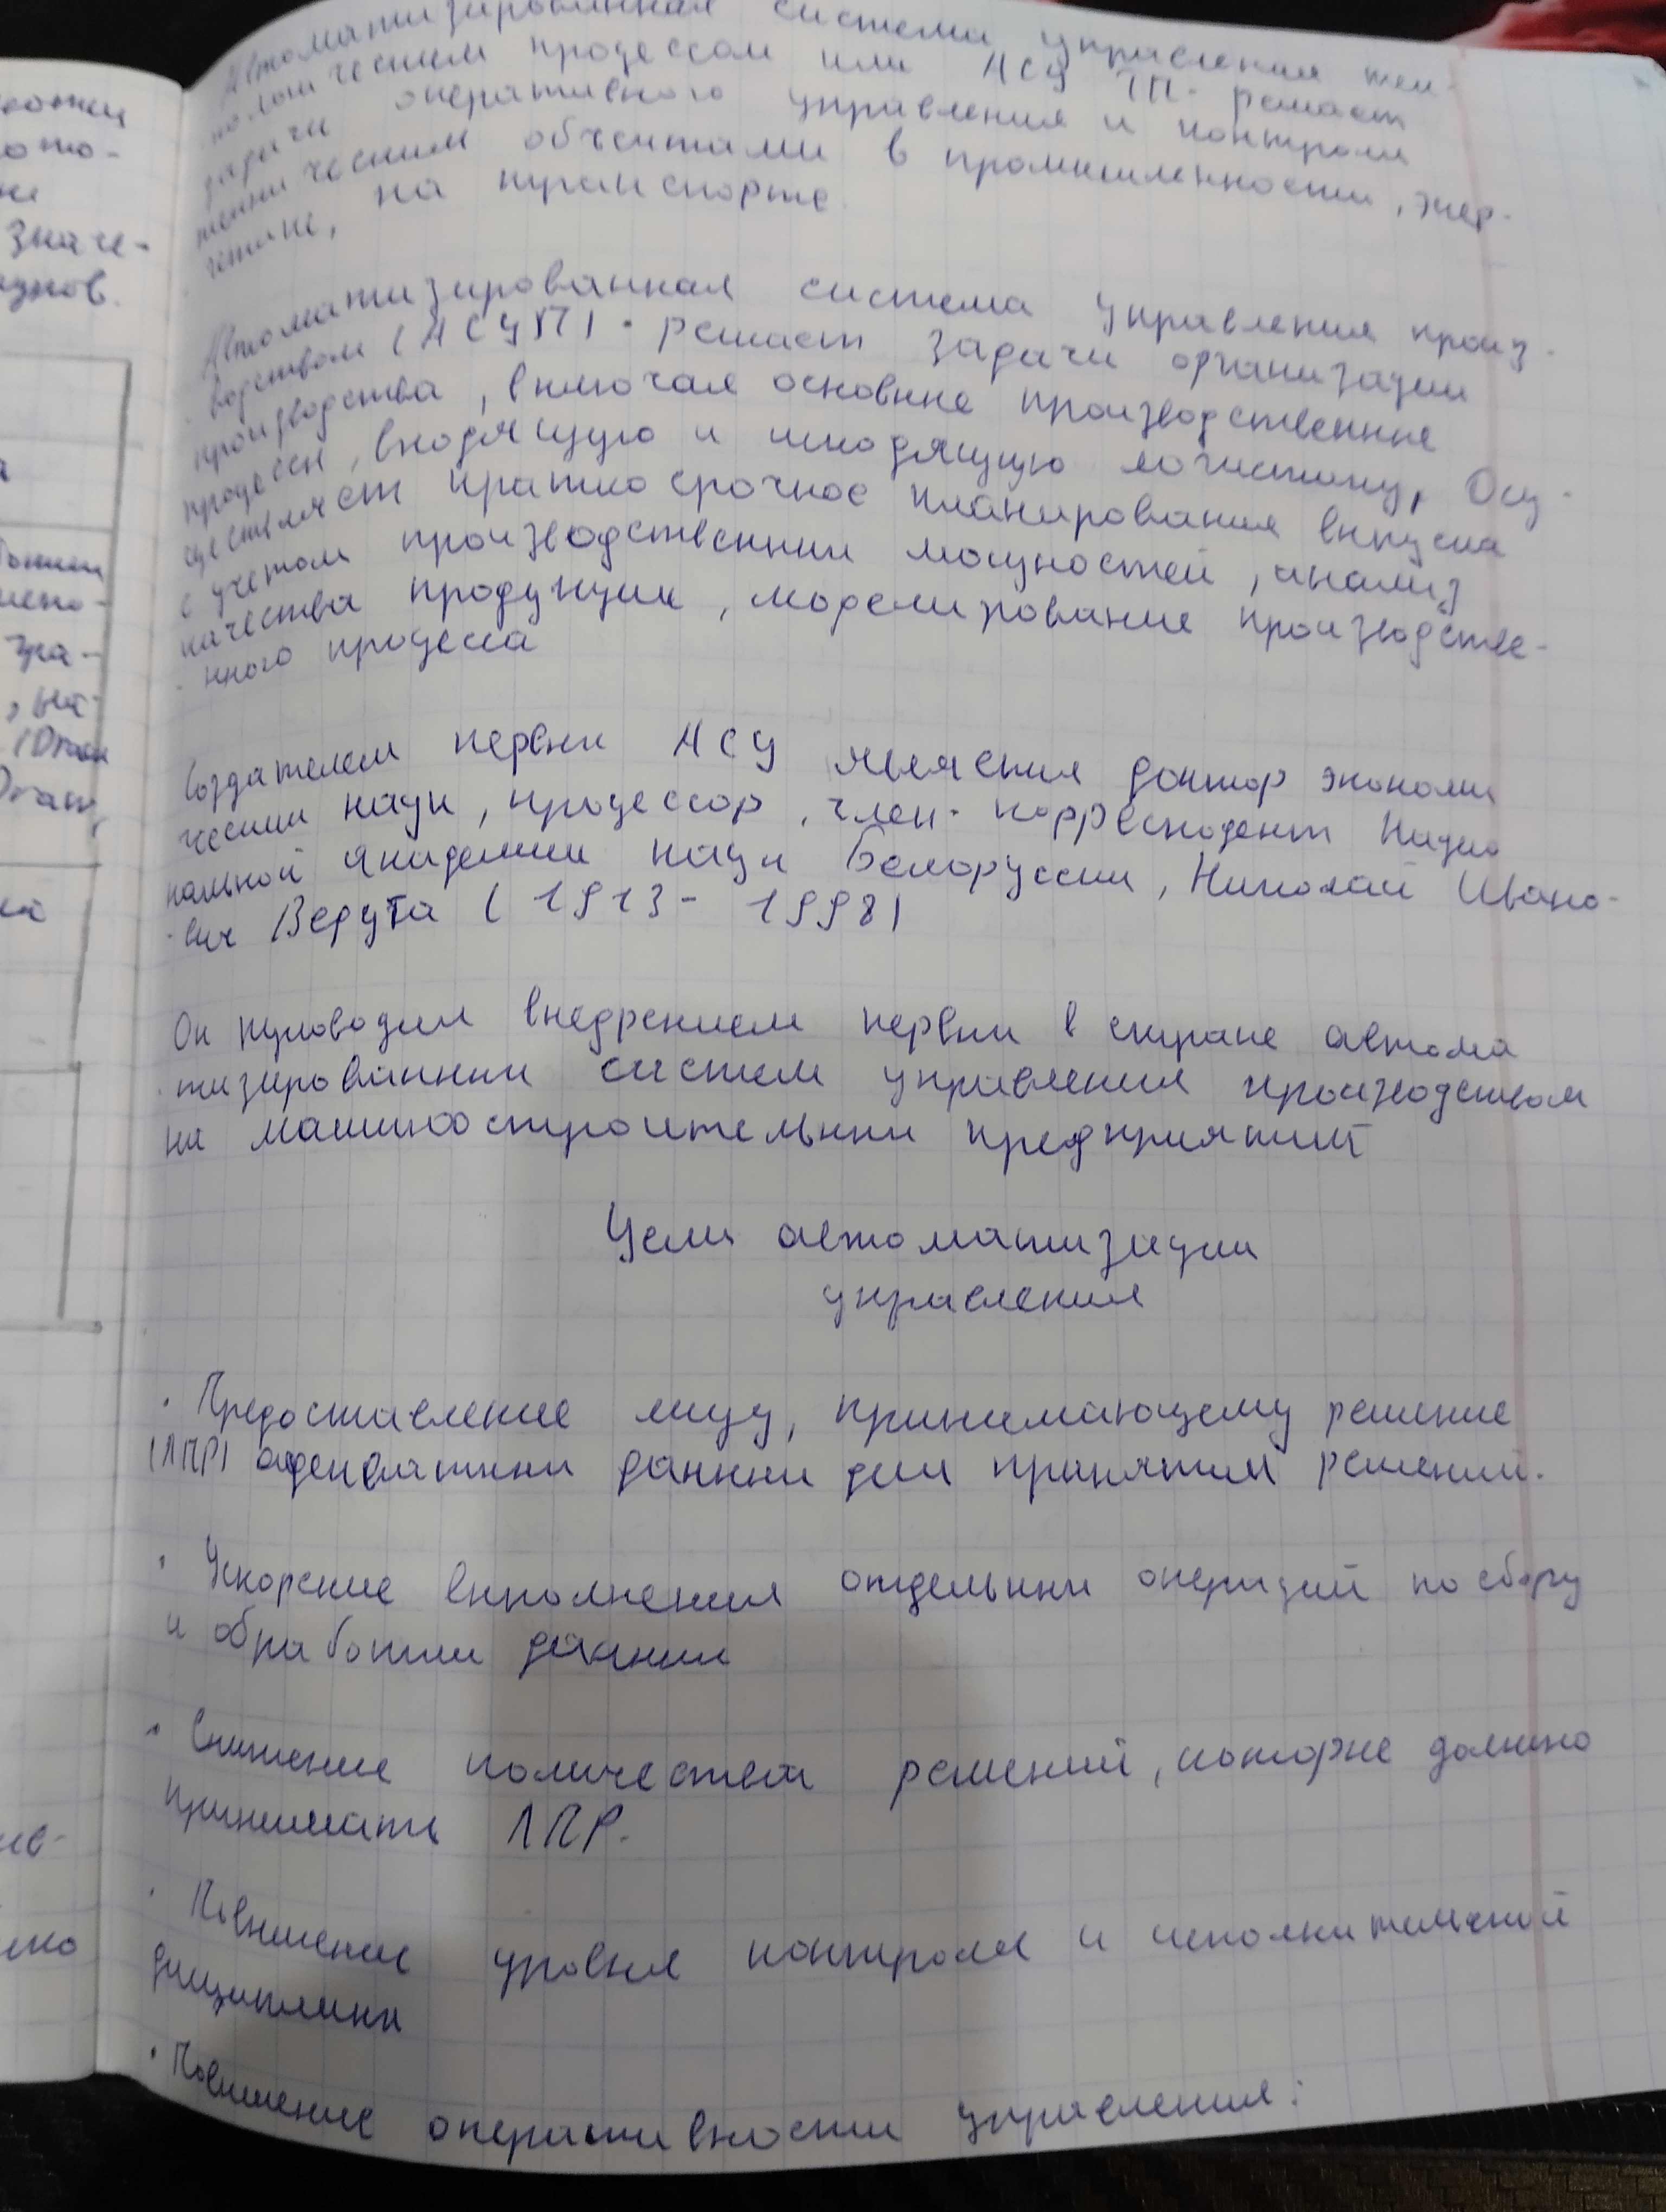 Автоматизированная система управления тех-
нологическим процессом или АСУ ТП - решает
задачи оперативного управления и контроля
техническим объектами в промышленности, энер-
гетике, на транспорте.
Автоматизированная система управления произ-
водством (АСУП) - решает задачи организации
производства, включая основные производственные
процессы, входящую и исходящую логистику, Осу-
ществляет краткосрочное планирования выпуска
с учетом производственных мощностей, анализ
качества продукции, моделирование производстве-
нного процесса
Создателем первых АСУ является доктор экономи
ческих наук, процессор, член-корреспондент Нацио
нальной Академии наук Белоруссии, Николай Ивано-
-вич Ведута (1913 - 1998)
Он руководил внедрением первых в стране автома
тизированных систем управления производством
на машиностроительных предприятий
Цели автоматизации
управления
• Предоставление лицу, принимающему решение
(ЛПР) адекватных данных для принятия решений.
• Ускорение выполнения отдельных операций по сбору
и обработки данных
• Снижение количества решений, которые должно
принимать ЛПР.
• Повышение уровня контроля и исполнительской
дисциплины
• Повышение оперативности управления:
зна-
значе-